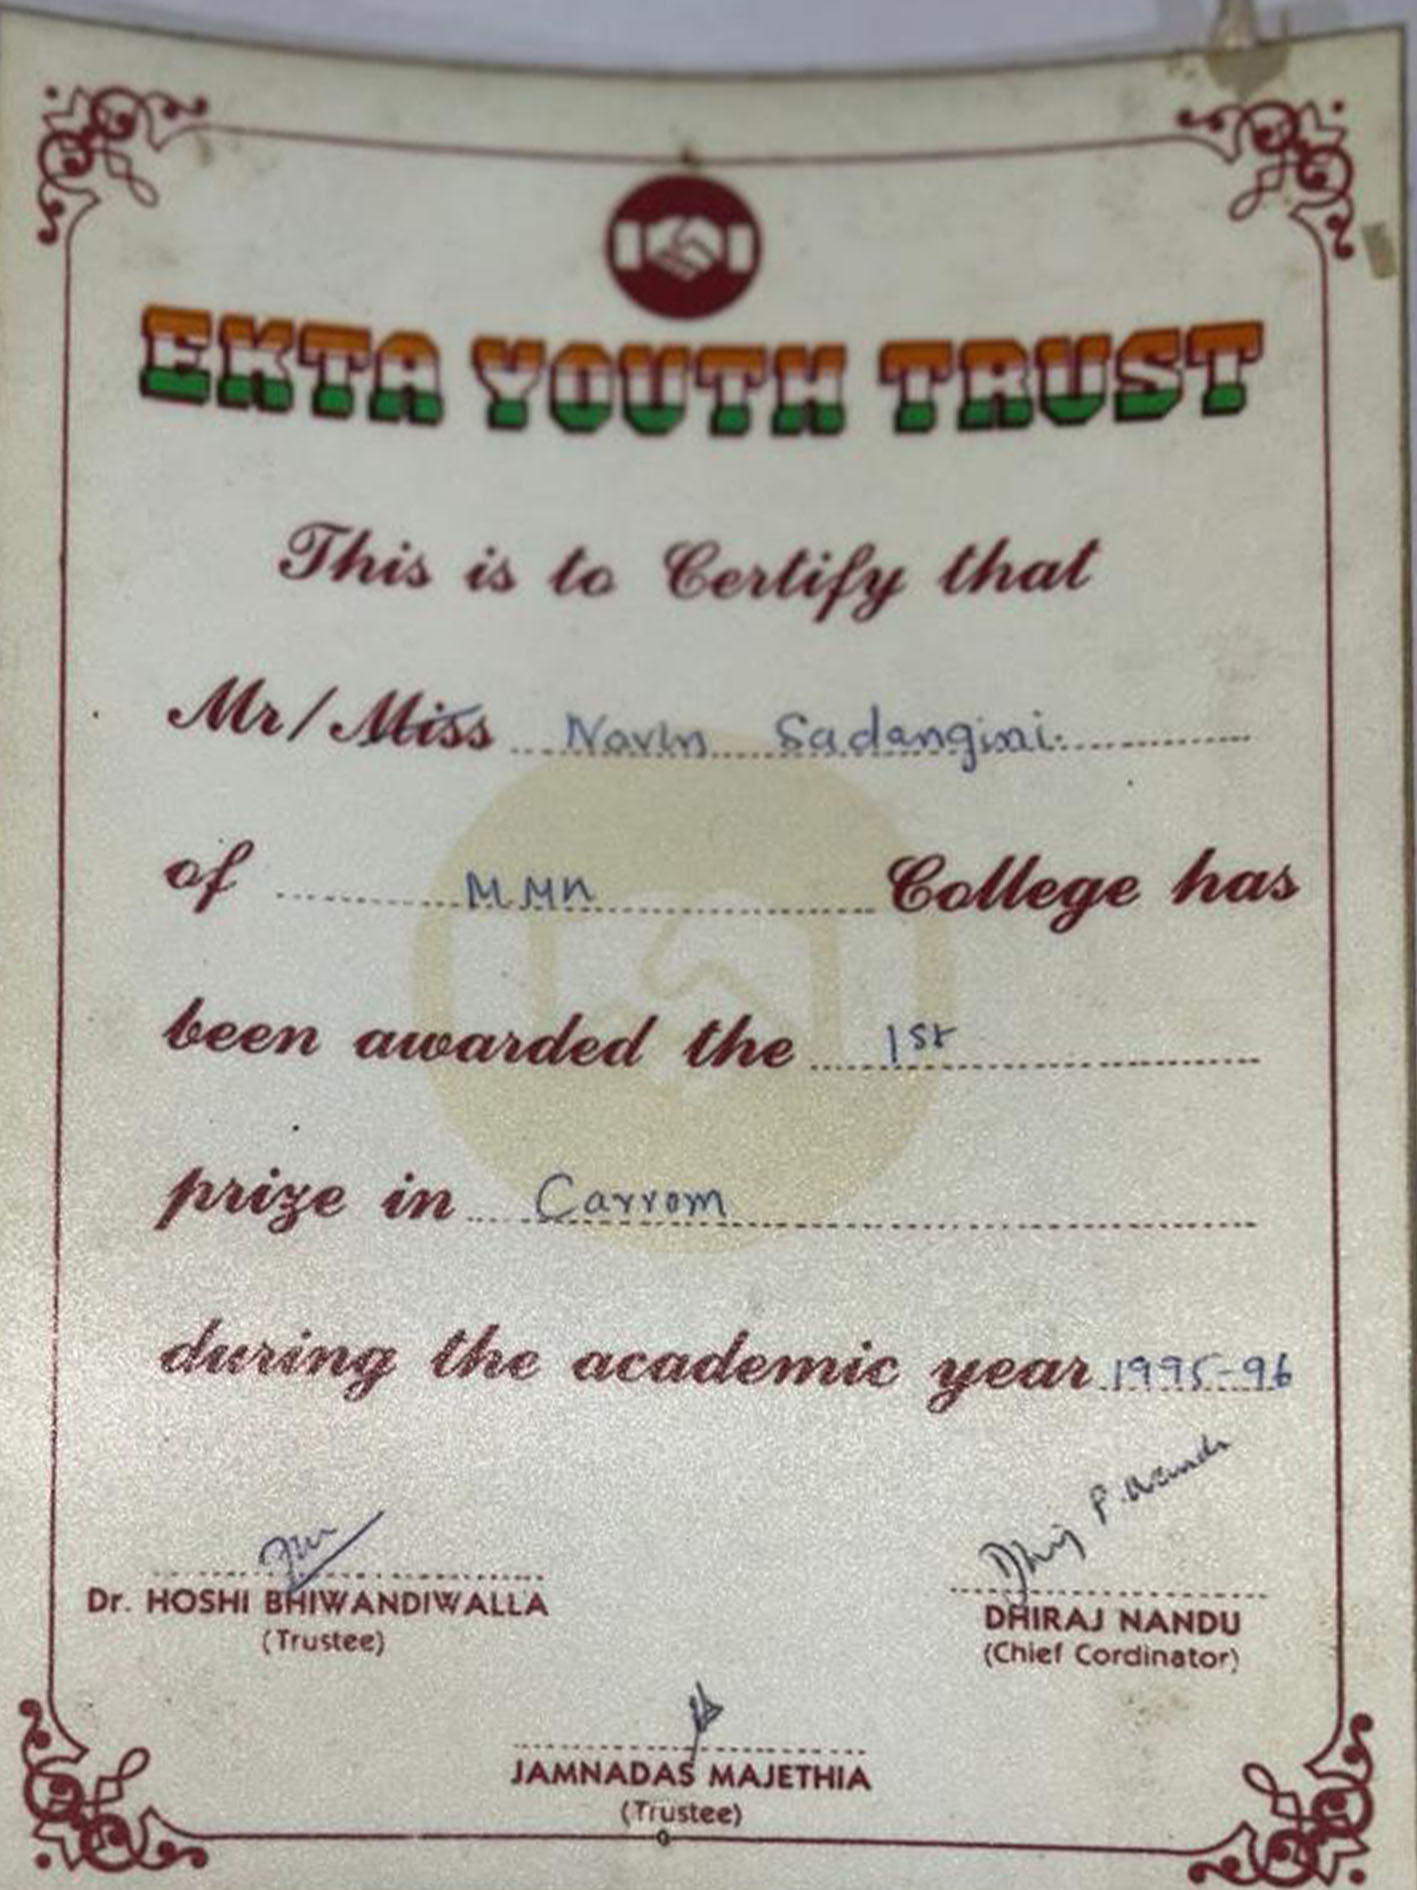 EKTA YOUTH TRUST
This is to Certify that
Mr/Miss Navin Sadangini.
of MMK College has
been awarded the 1st
prize in Carrom
during the academic year 1995-96
Dhiraj P. Nandu
Dr. HOSHI BHIWANDIWALLA
(Trustee)
DHIRAJ NANDU
(Chief Cordinator)
JAMNADAS MAJETHIA
(Trustee)